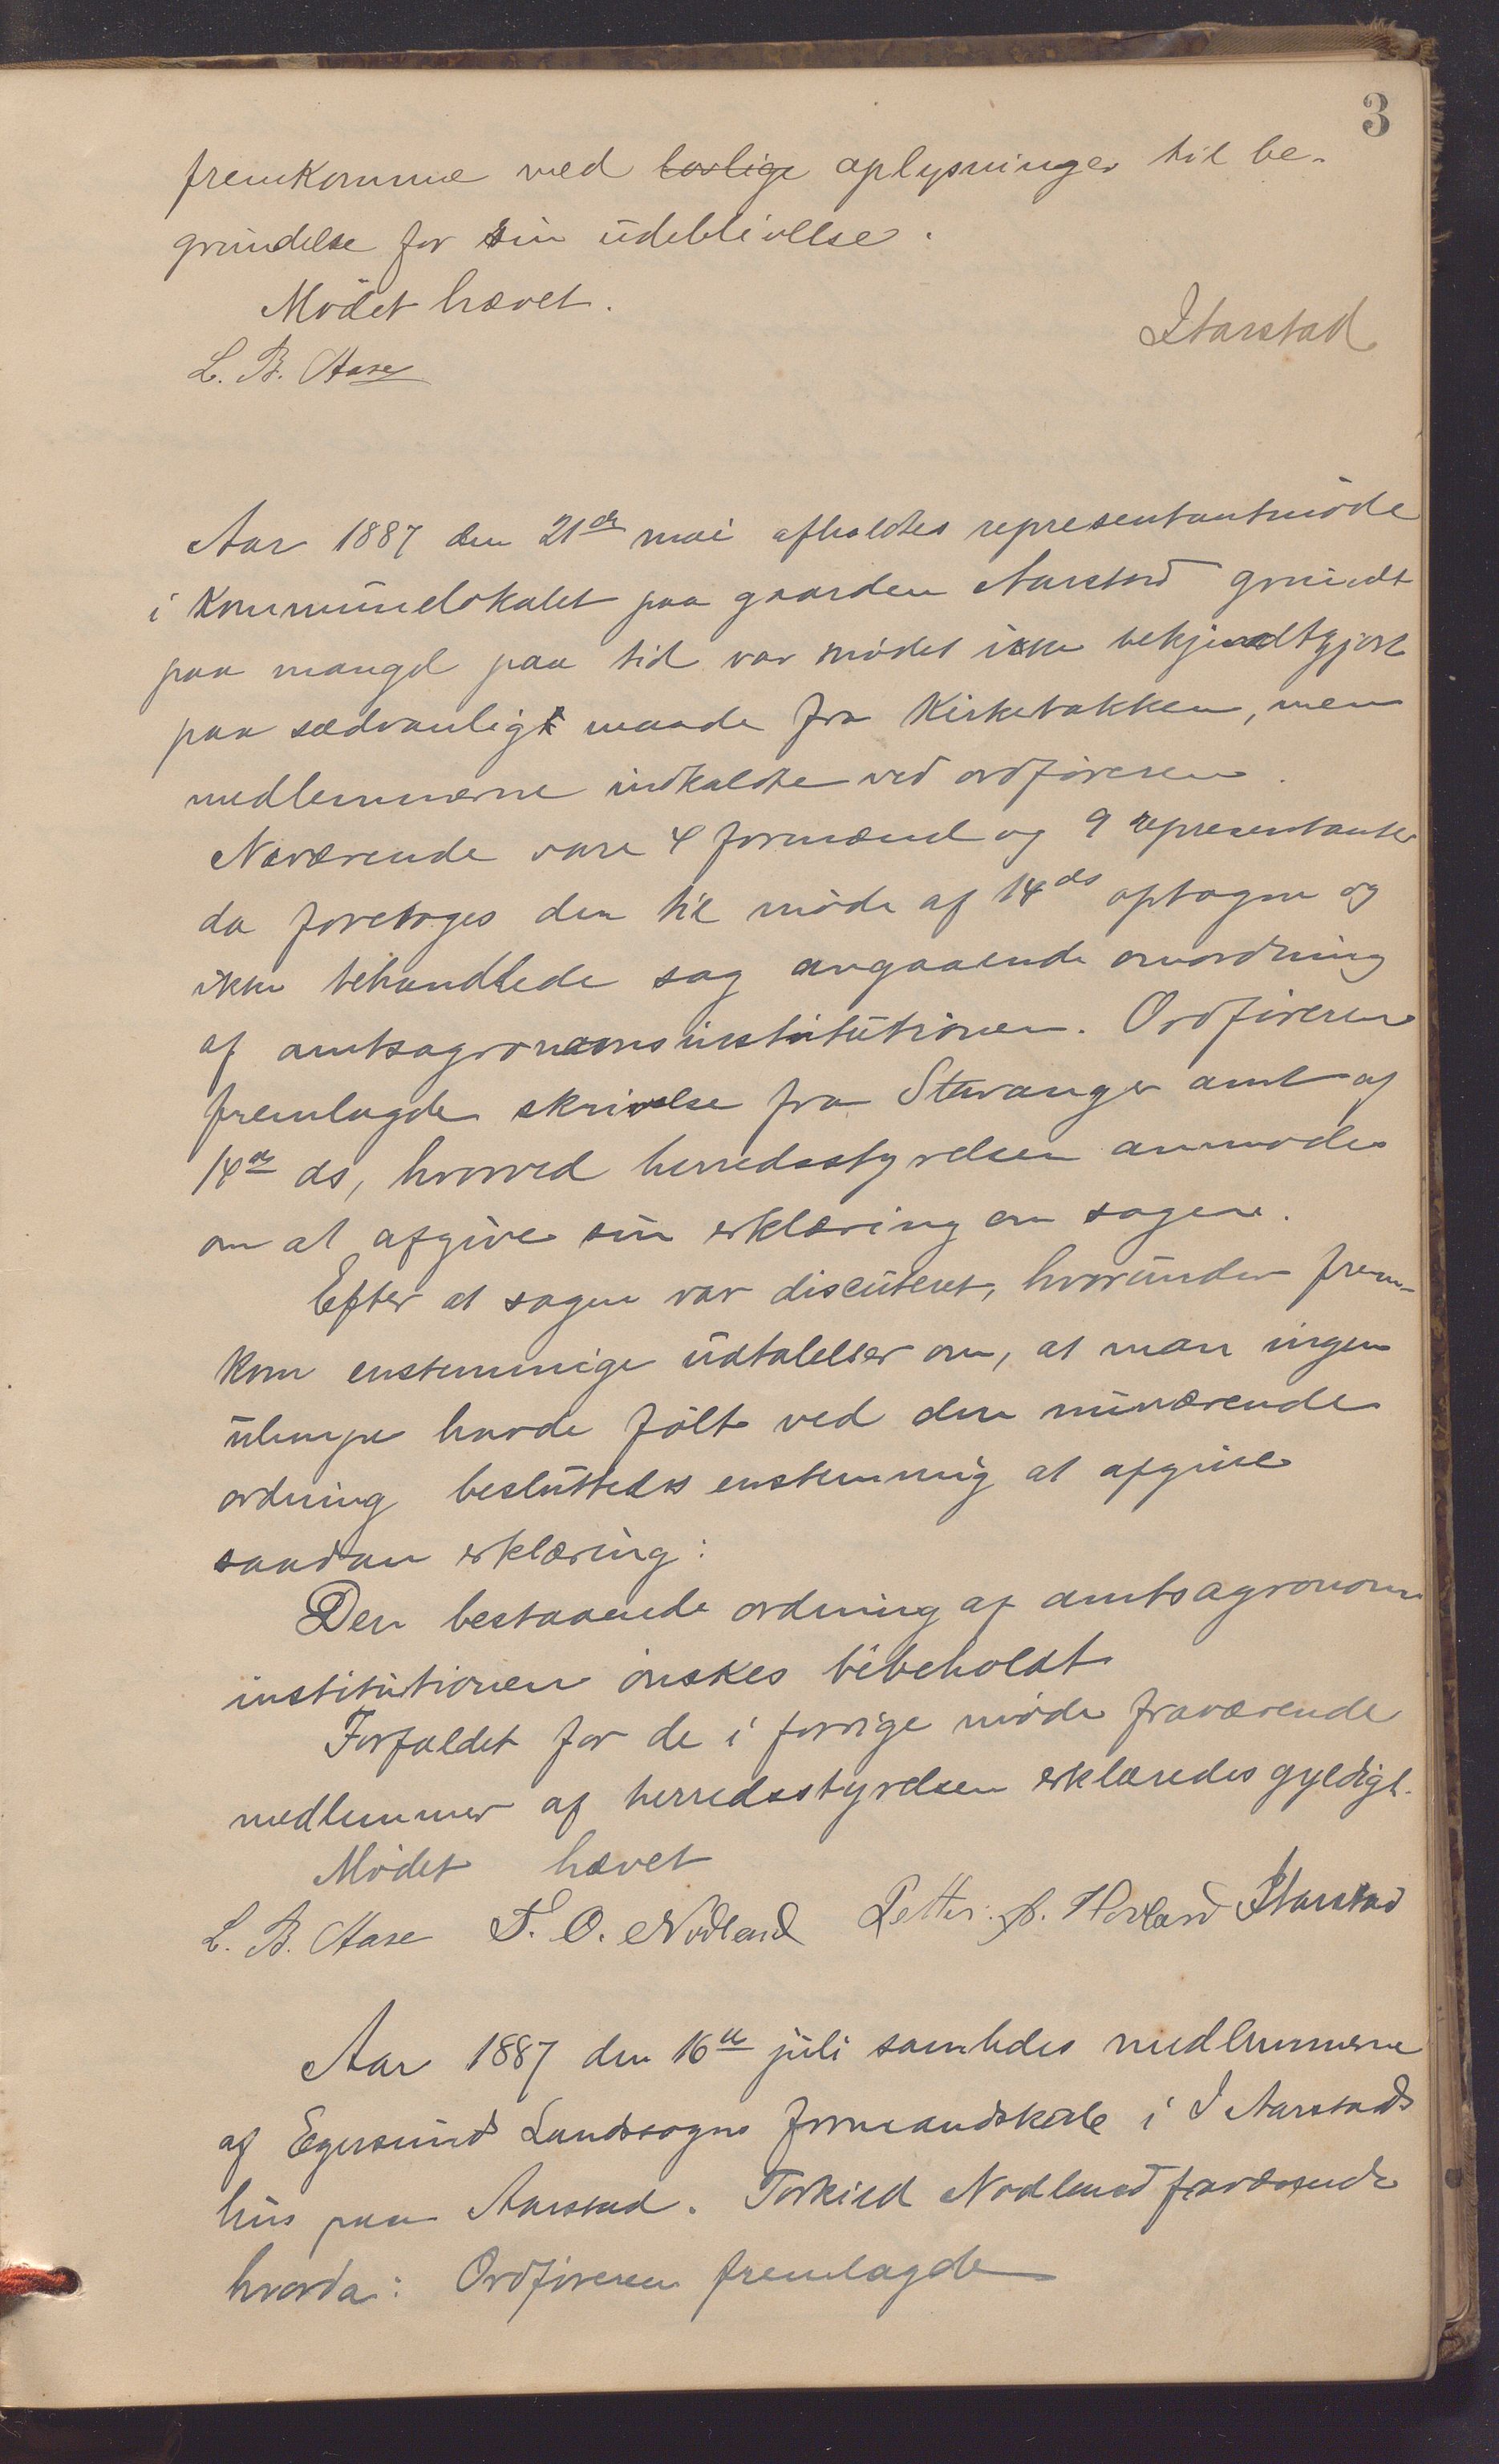 3
fremkomme med lovlige oplysninger til be-
grundelse for sin udeblivelse.
Mödet hævet.
L. B. Aase
I Aarstad
Aar 1887 den 21de mai afholdtes representantmöde
i Kommunelokalet paa gaarden Aarstad grundt
paa mangel paa tid var mödet ikke bekjendtgjort
paa sædvanlig maade fra Kirkebakken, men
medlemmerne indkaldte ved ordföreren.
Nærværende vare 4 formænd og 9 representanter
da foretoges den til möde af 14ds optagne og
ikke behandlede sag angaaende omordning
af amtsagronominstitutionen. Ordföreren
fremlagde skrivelse fra Stavanger amt af
14de ds, hvorved herredsstyrelsen anmodes
om at afgive sin erklæring om sagen.
Efter at sagen var discuteret, hvorunder frem-
kom enstemmige udtalelser om, at man ingen
ulempe havde fölt ved den nuværende
ordning besluttedes enstemmig at afgive
saadan erklæring:
Den bestaaende ordning af amtsagronom
institutionen önskes bibeholdt
Forfaldet for de i forrige möde fraværende
medlemmer af herredsstyrelsen erklæredes gyldigt.
Mödet hævet
L. B. Aase T. O. Nodland Petter A. Hovland I Aarstad
Aar 1887 den 16de juli samledes medlemmerne
af Egersunds Landsogns formandskab i I Aarstads
hus paa Aarstad. Torkild Nodland fraværende
hvorda: Ordföreren fremlagde